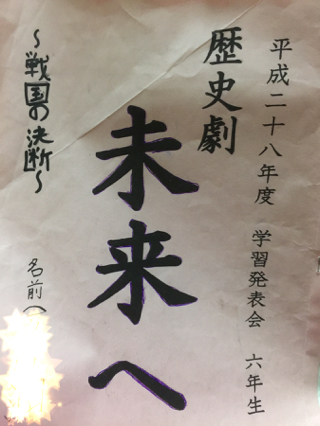 平成二十八年度 学習発表会 六年生
歴史劇
未来へ
～戦国の決断～
名前（